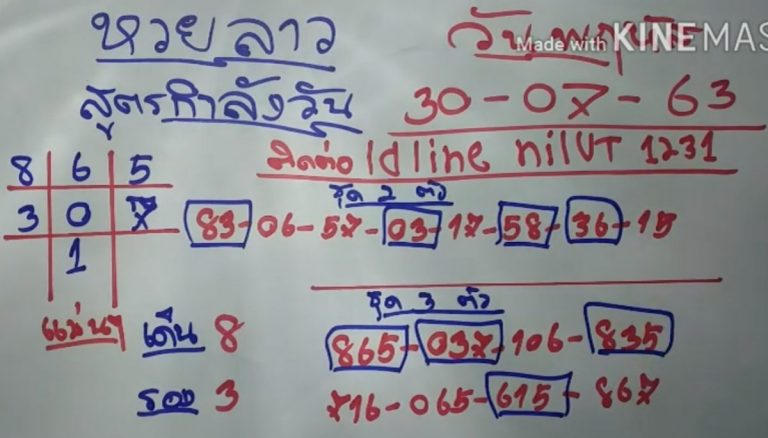 หวยลาว
วันพฤหัส
Made with KINEMAS
สูตรกำลังวัน
30-07-63
ติดต่อ Id line nilUT 1231
8 6 5
3 0 7
1
ชุด 2 ตัว
83-06-57-03-17-58-36-15
ชุด 3 ตัว
แม่นๆ
เด็น 8
865-037-106-835
รอง 3
716-065-615-867